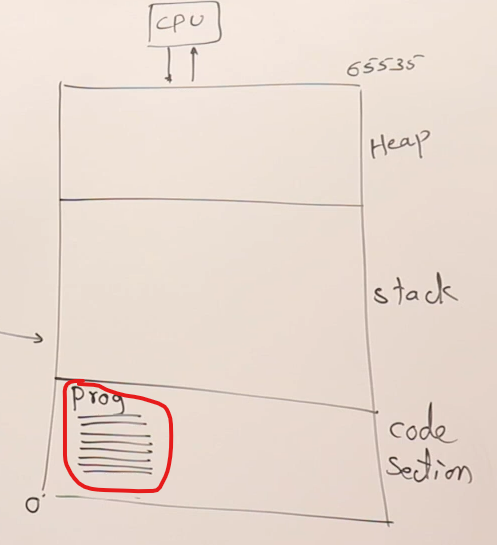 CPU
65535
Heap
stack
Prog
code
section
0